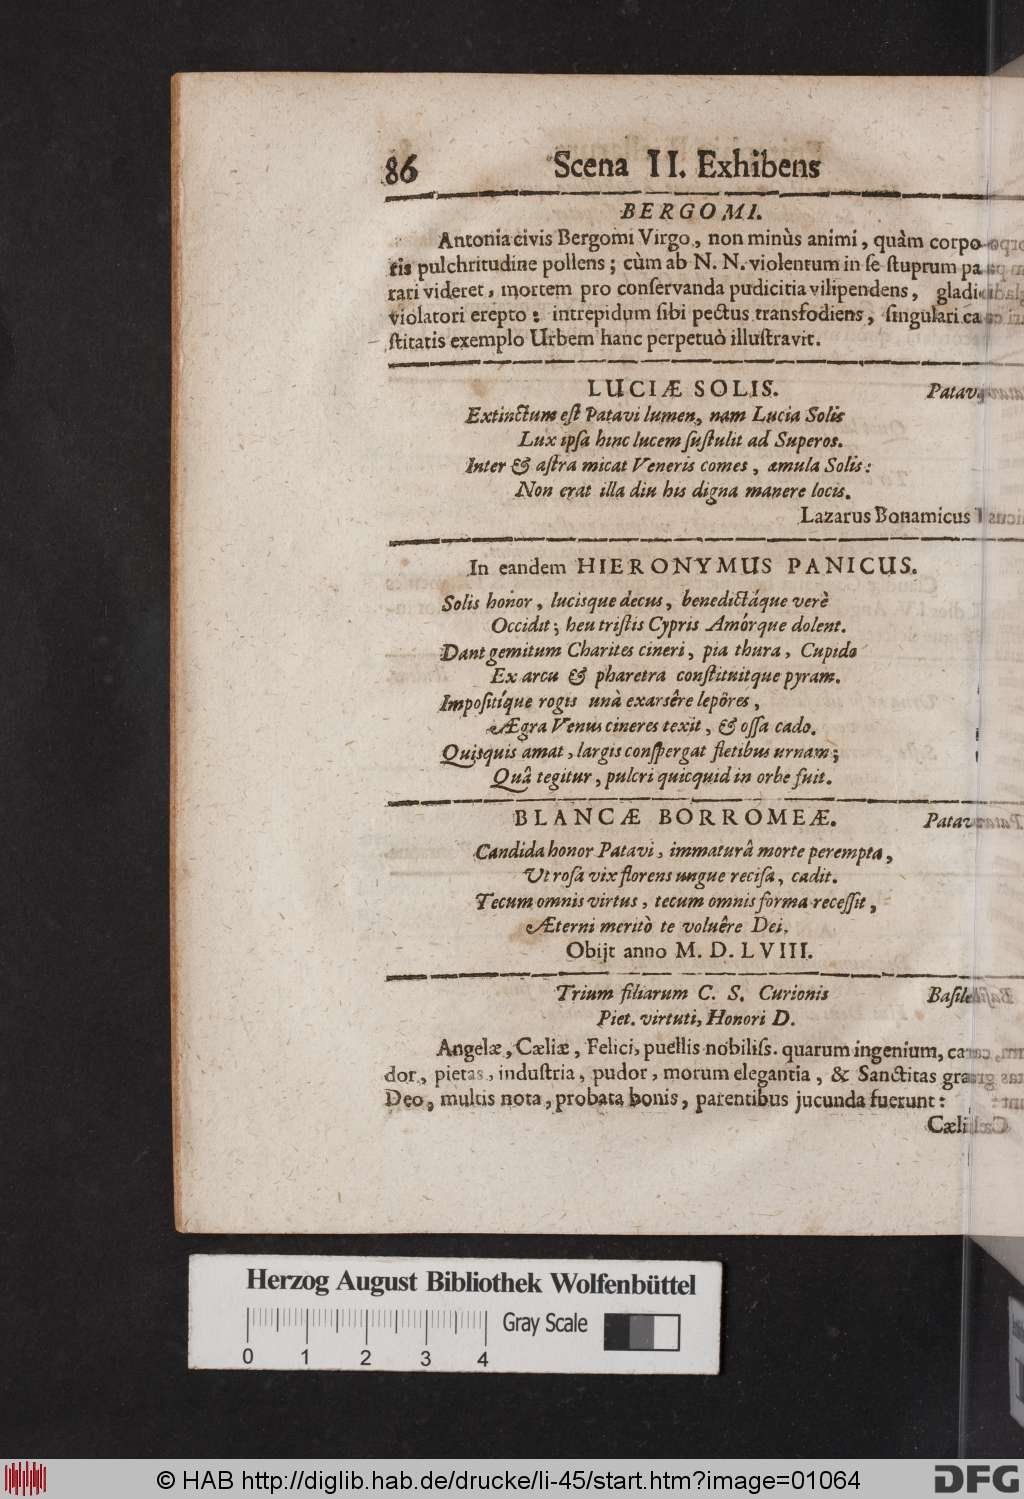 86 Scena II. Exhibens
BERGOMI.
Antonia civis Bergomi Virgo, non minùs animi, quàm corpo-
ris pulchritudine pollens; cùm ab N. N. violentum in se stuprum pa
rari videret, mortem pro conservanda pudicitia vilipendens, gladio
violatori erepto: intrepidum sibi pectus transfodiens, singulari ca
stitatis exemplo Urbem hanc perpetuò illustravit.
LUCIÆ SOLIS. Patav.
Extinctum est Patavi lumen, nam Lucia Solis
Lux ipsa hinc lucem sustulit ad Superos.
Inter & astra micat Veneris comes, æmula Solis:
Non erat illa diu his digna manere locis.
Lazarus Bonamicus
In eandem HIERONYMUS PANICUS.
Solis honor, lucisque decus, benedictáque verè
Occidit; heu tristis Cypris Amórque dolent.
Dant gemitum Charites cineri, pia thura, Cupido
Ex arcu & pharetra constituitque pyram.
Impositíque rogis unà exarsêre lepôres,
Ægra Venus cineres texit, & ossa cado.
Quisquis amat, largis conspergat fletibus urnam;
Quâ tegitur, pulcri quicquid in orbe fuit.
BLANCÆ BORROMEÆ. Patav
Candida honor Patavi, immaturâ morte perempta,
Ut rosa vix florens ungue recisa, cadit.
Tecum omnis virtus, tecum omnis forma recessit,
Æterni meritò te voluêre Dei.
Obijt anno M. D. LVIII.
Trium filiarum C. S. Curionis Basileæ
Piet. virtuti, Honori D.
Angelæ, Cæliæ, Felici, puellis nobiliss. quarum ingenium, can-
dor, pietas, industria, pudor, morum elegantia, & Sanctitas grata
Deo, multis nota, probata bonis, parentibus jucunda fuerunt:
Cæli
Herzog August Bibliothek Wolfenbüttel
Gray Scale
0 1 2 3 4
© HAB http://diglib.hab.de/drucke/li-45/start.htm?image=01064
DFG